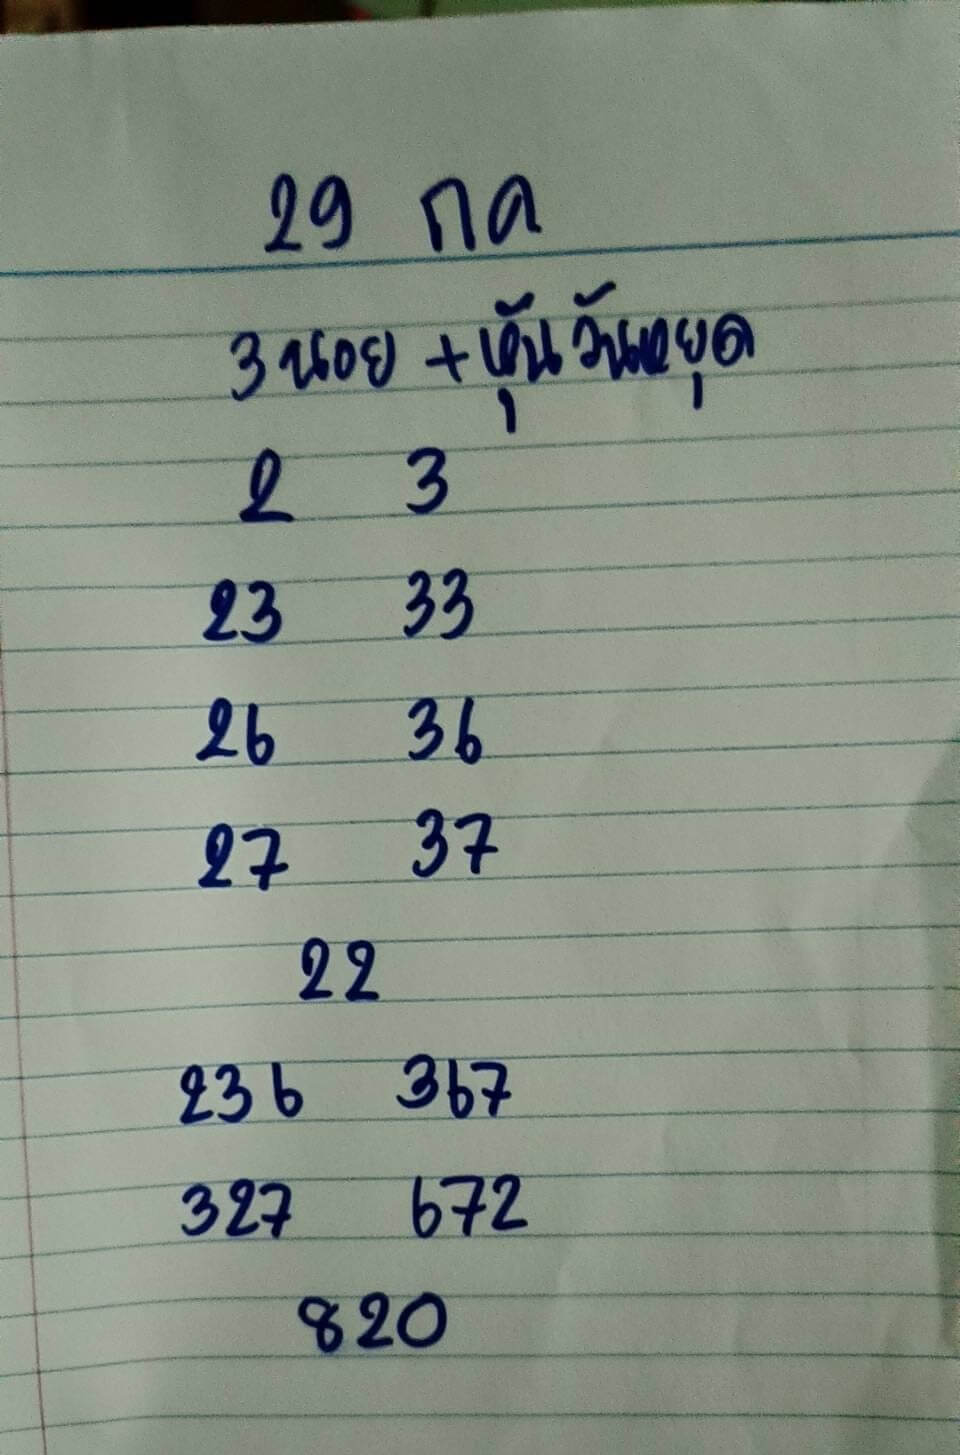 29 กค
3 นอย + หุ้นวันหยุด
2 3
23 33
26 36
27 37
22
236 367
327 672
820